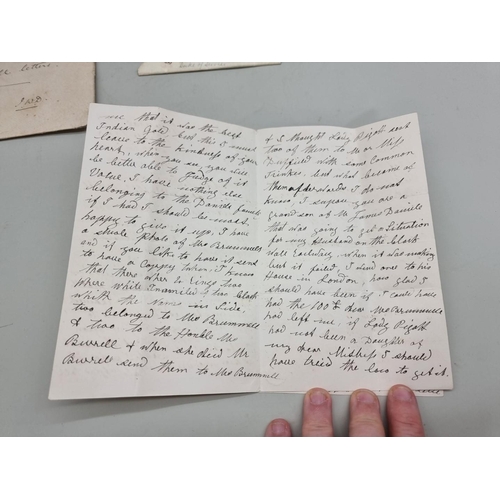 me that it was the best
Indian Gold but this I must
leave to the kindness of your
heart, when you see, you will
be better able to Judge of its
Value, I have nothing else
belonging to the Daniels family
if I had I should be most
happy to give it up, I have
a small Photo of Mrs Brummell
and if you like to have it send
to have a Coppey taken, I know
that there wher to Rings two
where White Enamiled & two black
with the Name in Side,
two belonged to Mrs Brummell
& two to the Honble Mr
Burrell & when she died Mr
Burrell send them to Mrs Brummell
& I thought Lady Pigott sent
two of them to Mr or Miss
Duffield with some Common
Trinkes, but what become of
them afterwards I do not
know, I supose you are a
grandson of Mr James Daniels
that was going to get a Situation
for my Husband on the Black
Wall Railway, when it was making
but it failed, I send one to his
House in London, how glad I
should have been if I could have
had the 100£ dear Mrs Brummell
had left me, if Lady Pigott
had not been a Daughter of
my dear Mistress I should
have tried the law to get it